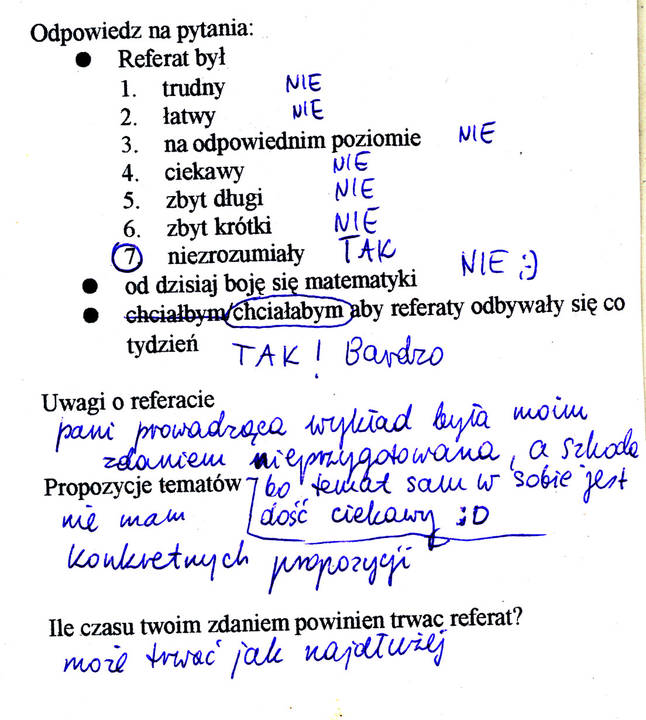 Odpowiedz na pytania:
● Referat był
1. trudny NIE
2. łatwy NIE
3. na odpowiednim poziomie NIE
4. ciekawy NIE
5. zbyt długi NIE
6. zbyt krótki NIE
7 niezrozumiały TAK
● od dzisiaj boję się matematyki NIE ;)
● chciałbym/chciałabym aby referaty odbywały się co
tydzień TAK! Bardzo
Uwagi o referacie
pani prowadząca wykład była moim
zdaniem nieprzygotowana, a szkoda
bo temat sam w sobie jest
dość ciekawy ;D
Propozycje tematów
nie mam
konkretnych propozycji
Ile czasu twoim zdaniem powinien trwac referat?
może trwać jak najdłużej